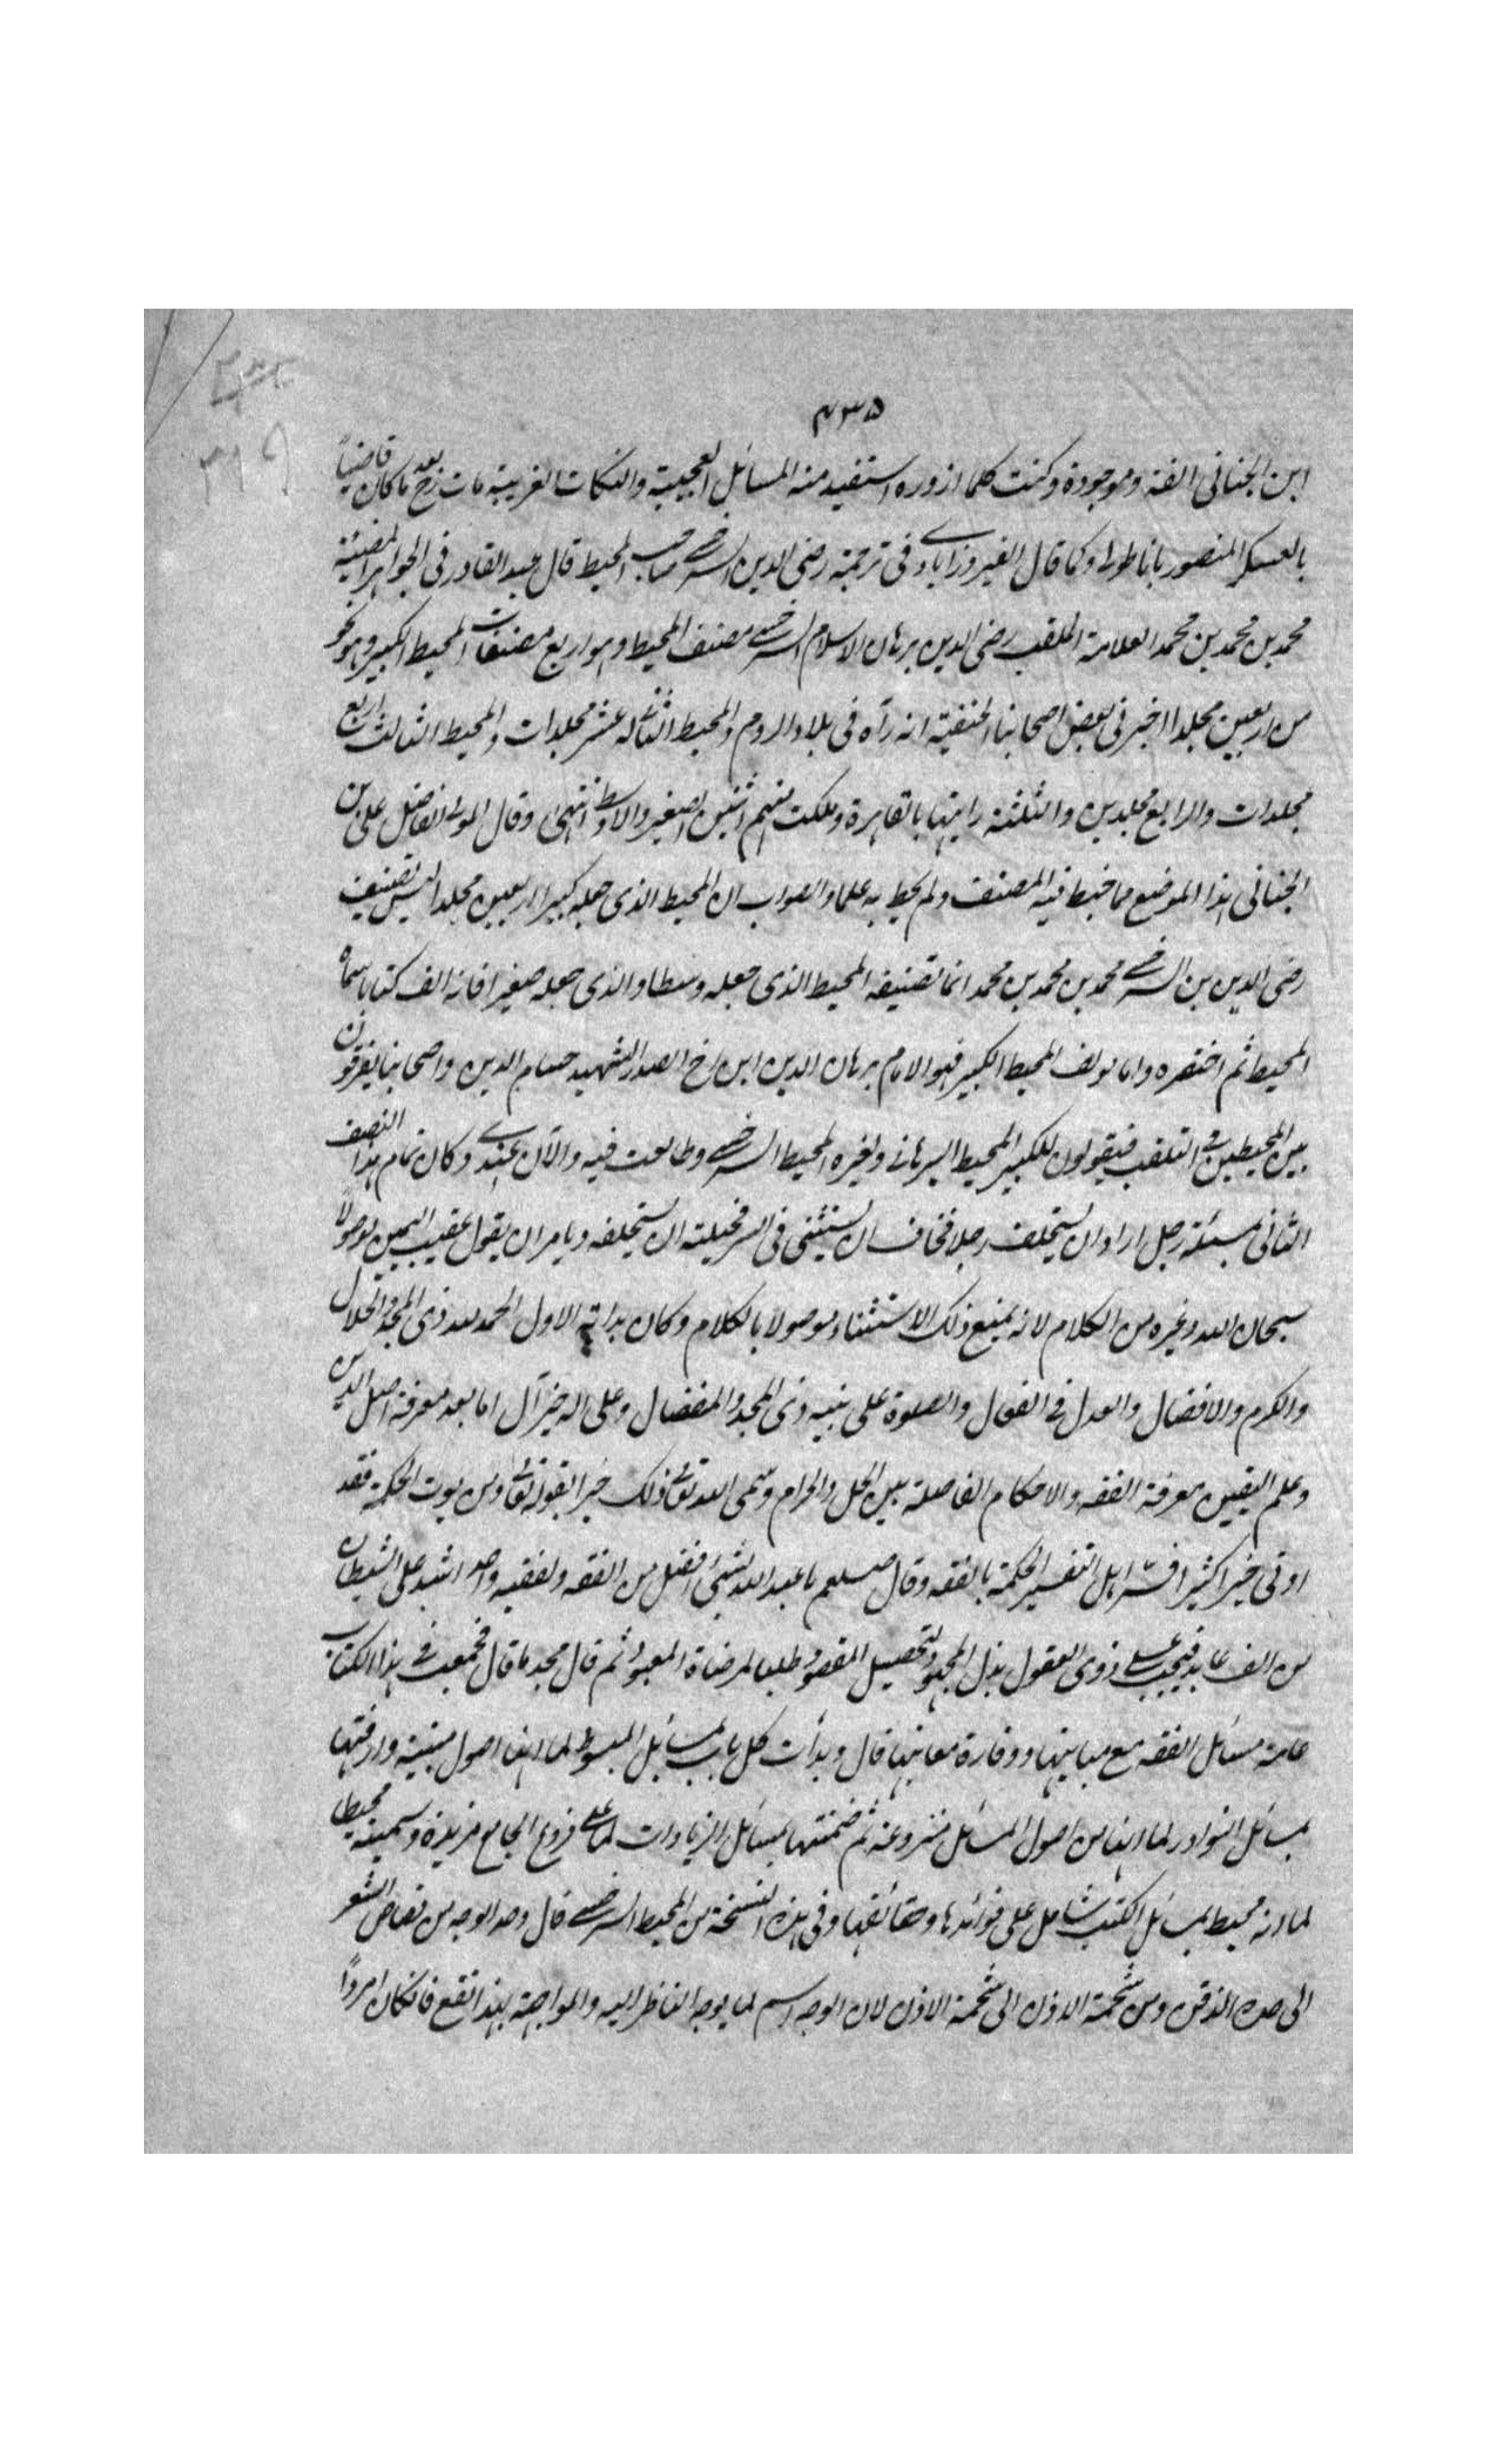 ٤٣٥
٣١٩
ابن الجنائی الفنه وموجودة وكنت كلما ازوره استفيد منه المسائل العجيبة والنكات الغريبة مات رح بعد ما كان قاضياً
بالعسكر المنصور باناطولی وكما قال الفيروزابادی فی ترجمة رضی الدين السرخسی صاحب المحيط قال عبد القادر فی الجواهر المضيئة
محمد بن محمد بن محمد العلامة الملقب رضی الدين برهان الاسلام السرخسی مصنف المحيط وهو اربع مصنفات المحيط الكبير وهو نحو
من اربعين مجلدا اخبرنی بعض اصحابنا الحنفية انه رآه فی بلاد الروم والمحيط الثانی له عشر مجلدات والمحيط الثالث اربع
مجلدات والرابع مجلدين والثلثة رايتها بالقاهرة وملكت منهم اثنين الصغير والاوسط انتهی وقال المولی الفاضل علی بن
الجنائی هذا الموضع مما خبط فيه المصنف ولم يحط به علما والصواب ان المحيط الذی جعله كبيرا اربعين مجلدا ليس تصنيف
رضی الدين بن السرخسی محمد بن محمد بن محمد انما تصنيفه المحيط الذی جعله وسطا والذی جعله صغيرا فانه الف كتابا سماه
المحيط ثم اختصره واما مولف المحيط الكبير فهو الامام برهان الدين ابن اخ الصدر الشهيد حسام الدين واصحابنا يفرقون
بين المحيطين فی التلقب فيقولون للكبير المحيط البرهانی ولغيره المحيط السرخسی وطالعت فيه والآن عندی وكان تمام هذا النصف
الثانی مسئلة رجل اراد ان يستحلف رجلا فخاف ان يستثنی فی السر فحيلته ان يستحلفه ويامر ان يقول عقيب اليمين موصولاً
سبحان الله وغيره من الكلام لانه يمنع ذلك الاستثناء موصولا بالكلام وكان بداية الاول الحمد لله ذی المجد والجلال
والكرم والافضال والعدل فی الفعال والصلوة علی نبيه ذی المجد والمفضال وعلی اله خير آل اما بعد معرفة اصل الدين
وعلم اليقين معرفة الفقه والاحكام الفاصلة بين الحل والحرام وسمی الله تعالی ذلك خيرا بقوله تعالی ومن يوت الحكمة فقد
اوتی خيرا كثيرا فسّر اهل التفسير الحكمة بالفقه وقال صلعم ما عبد الله بشیء افضل من الفقه ولفقيه واحد اشد علی الشيطان
من الف عابد فيجب علی ذوی العقول بذل المجهود لتحصيل المقصود طلبا لمرضاة المعبود ثم قال محمد ما قال فجمعت فی هذا الكتاب
عامة مسائل الفقه مع مبانيها ووفارة معانيها قال وبدأت كل باب بمسائل المبسوط لما انها اصول مبنية واردفتها
بمسائل النوادر لما انها من اصول المسائل منزوعة ثم ضمنتها بمسائل الزيادات لما علی فروع الجامع مزيدة وسميته محيطا
لما انه محيط بمسائل الكتب شامل علی فوائدها وحقائقها وفی هذه النسخة من المحيط السرخسی قال وحد الوجه من قصاص الشعر
الی حد الذقن ومن شحمة الاذن الی شحمة الاذن لان الوجه اسم لما يوجه الناظر اليه والمواجهة بهذا تقع فانكان امرداً